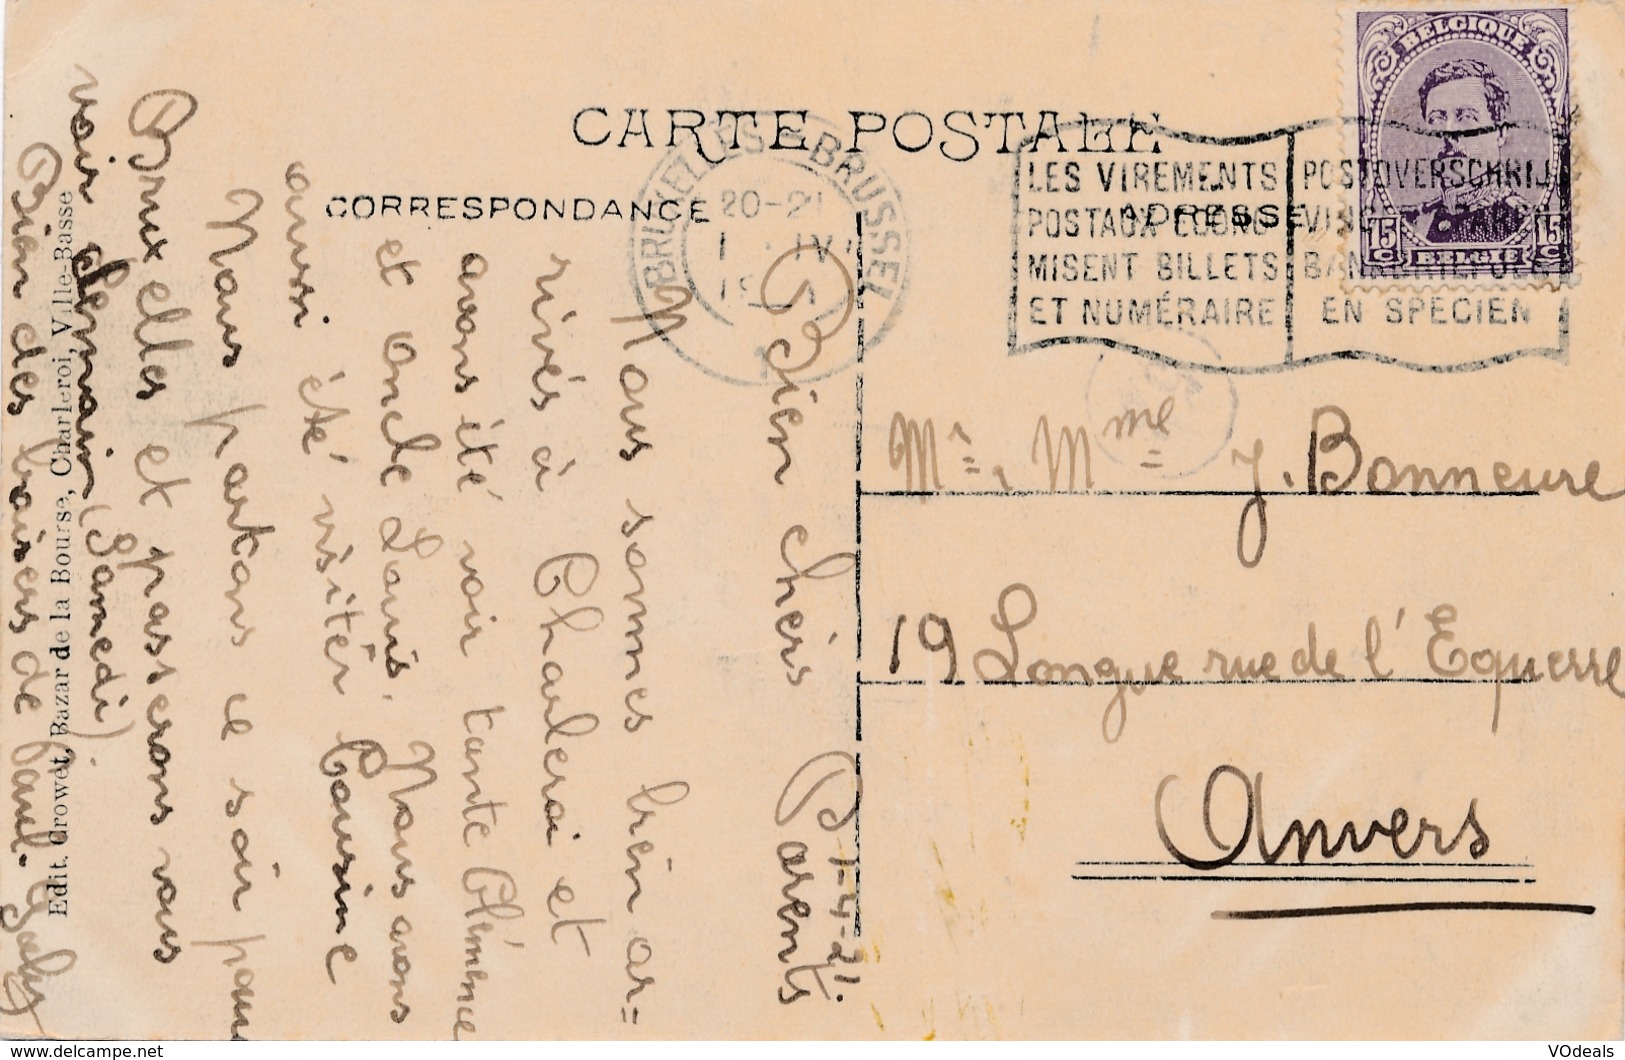 CARTE POSTALE
CORRESPONDANCE
ADRESSE
BELGIQUE
15 C
15 C
BELGIE
BRUXELLES BRUSSEL
20-21
IV
LES VIREMENTS
POSTAUX
MISENT BILLETS
ET NUMÉRAIRE
POSTOVERSCHRIJ
VING
EN SPECIEN
1-4-21.
Bien chers Parents
Nous sommes bien ar=
rivés à Charleroi et
avons été voir tante Clémence
et oncle Louis. Nous avons
aussi été visiter Cousine
Nous partons ce soir pour
Bruxelles et passerons vous
voir demain (Samedi).
Bien des baisers de Paul. Gaby
Mr. Mme J. Bonneure
19 Longue rue de l'Equerre
Anvers
Edit. Growet, Bazar de la Bourse, Charleroi, Ville-Basse
VOdeals